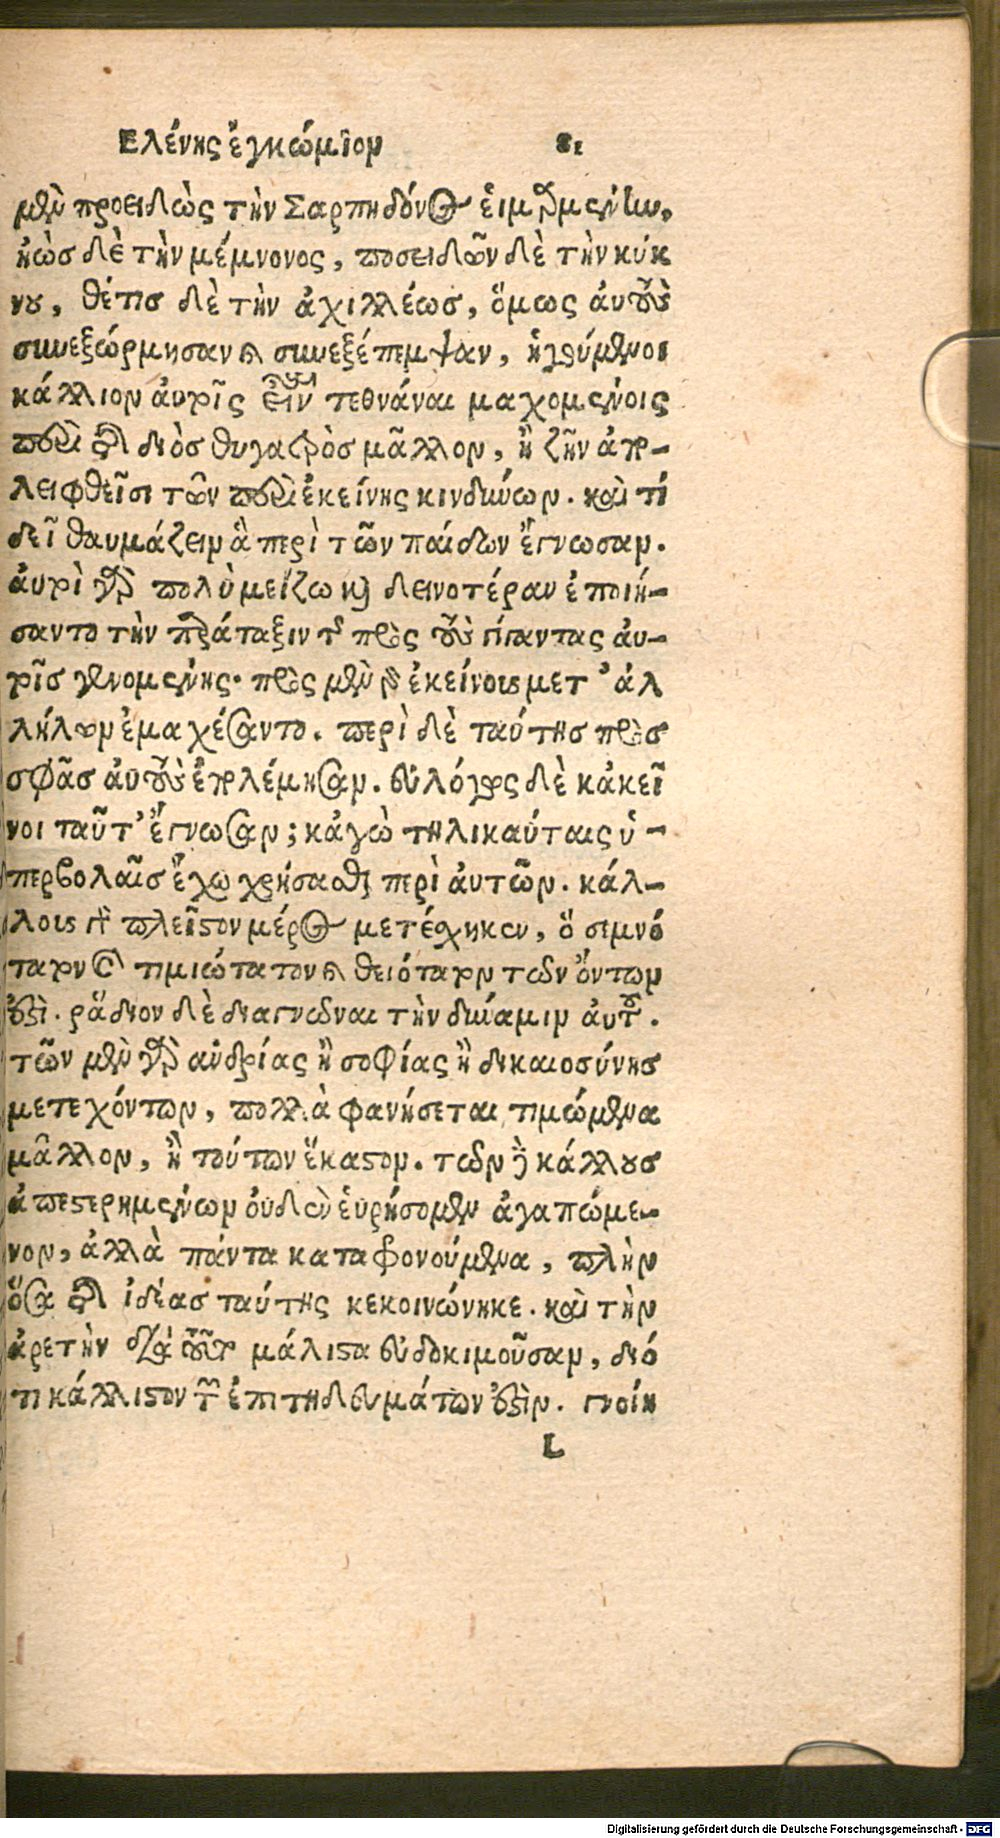 Ελένης ἐγκώμιον 81
μὲν προειδὼς τὴν Σαρπηδόνος εἱμαρμένην,
ἠὼσ δὲ τὴν μέμνονος, ποσειδῶν δὲ τὴν κύκ
νου, θέτισ δὲ τὴν ἀχιλλέωσ, ὅμως ἀυτοὺσ
συνεξώρμησαν καὶ συνεξέπεμψαν, ἡγούμενοι
κάλλιον ἀυτοῖς εἶναι τεθνάναι μαχομένοις
περὶ τῆς διὸσ θυγατρὸσ μᾶλλον, ἢ ζῆν ἀπο-
λειφθεῖσι τῶν περὶ ἐκείνης κινδύνων. καὶ τί
δεῖ θαυμάζειν ἃ περὶ τῶν παίδων ἔγνωσαν.
ἀυτοὶ γὰρ πολὺ μείζω καὶ δεινοτέραν ἐποιή-
σαντο τὴν παράταξιν τῆς πρὸς τοὺς γίγαντας ἀυ-
τοῖσ γενομένης. πρὸς μὲν γὰρ ἐκείνους μετ' ἀλ
λήλων ἐμαχέσαντο. περὶ δὲ ταύτησ πρὸσ
σφᾶσ ἀυτοὺσ ἐπολέμησαν. εὐλόγως δὲ κἀκεῖ
νοι ταῦτ' ἔγνωσαν; κἀγὼ τηλικαύταις ὑ-
περβολαῖσ ἔχω χρήσασθαι περὶ ἀυτῶν. κάλ-
λους γὰρ πλεῖστον μέρος μετέσχηκεν, ὃ σεμνό
τατον καὶ τιμιώτατον καὶ θειότατον τῶν ὄντων
ἐστὶ. ῥᾴδιον δὲ διαγνῶναι τὴν δύναμιν ἀυτοῦ.
τῶν μὲν γὰρ ἀνδρίας ἢ σοφίας ἢ δικαιοσύνησ
μετεχόντων, πολλὰ φανήσεται τιμώμενα
μᾶλλον, ἢ τούτων ἕκαστον. τῶν δὲ κάλλουσ
ἀπεστερημένων ὀυδὲν ἑυρήσομεν ἀγαπώμε-
νον, ἀλλὰ πάντα καταφρονούμενα, πλὴν
ὅσα τῆς ἰδέασ ταύτης κεκοινώνηκε. καὶ τὴν
ἀρετὴν διὰ τοῦτο μάλιστα εὐδοκιμοῦσαν, διό
τι κάλλιστον τῶν ἐπιτηδευμάτων ἐστὶν. γνοίη
L
Digitalisierung gefördert durch die Deutsche Forschungsgemeinschaft - DFG